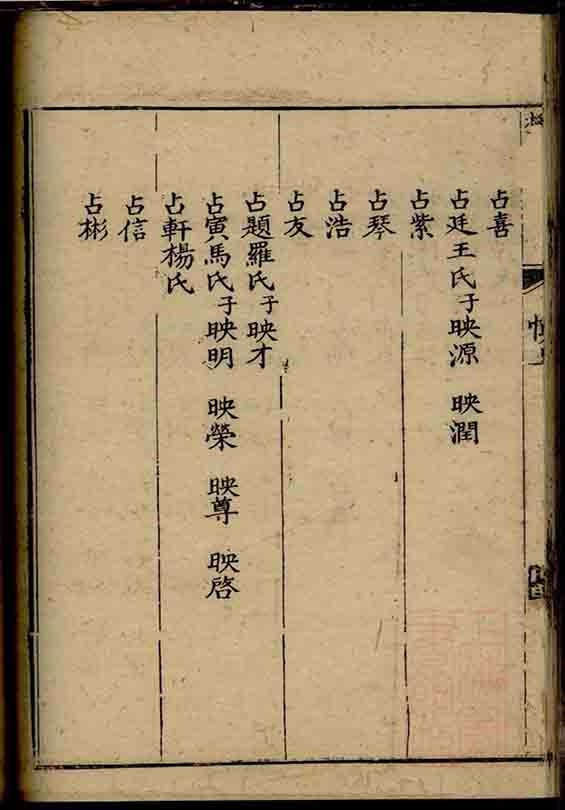 占喜
占廷王氏子映源 映潤
占紫
占琴
占浩
占友
占題羅氏子映才
占寅馬氏子映明 映榮 映尊 映啓
占軒楊氏
占信
占彬